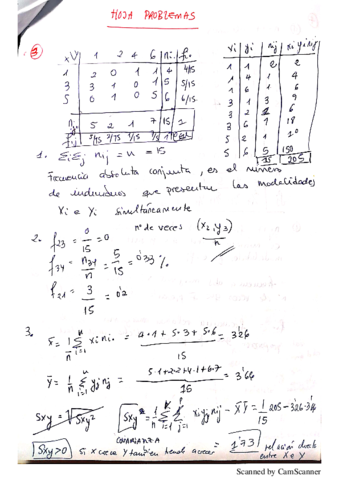 HOJA PROBLEMAS
3
x\y 1 2 4 6 ni. fi.
1 2 0 1 1 4 4/15
3 3 1 0 1 5 5/15
5 0 1 0 5 6 6/15
n.j 5 2 1 7 15 1
f.j 5/15 2/15 1/15 7/15 1
xi yi nij xi yi nij
1 1 2 2
1 4 1 4
1 6 1 6
3 1 3 9
3 2 1 6
3 6 1 18
5 2 1 10
5 6 5 150
15 205
1. Σi Σj nij = n = 15
Frecuencia absoluta conjunta, es el número
de individuos que presentan las modalidades
Xi e Yi simultáneamente
2. f23 = 0/15 = 0
nº de veces (x2, y3) / n
f34 = n34/n = 5/15 = 0'33 %.
f21 = 3/15 = 0'2
3.
x̄ = 1/n Σ xi ni. = 4·1 + 5·3 + 5·6 / 15 = 3'26
ȳ = 1/n Σ yj nj = 5·1+2·2+4·1+6·7 / 15 = 3'66
Sxy = 1/n Σ Σ xi yj nij - x̄ ȳ = 1/15 205 - 3'26·3'66
COVARIANZA = 1'73 relación directa
Sxy>0 Si X crece Y también tiende a crecer entre X e Y
Scanned by CamScanner